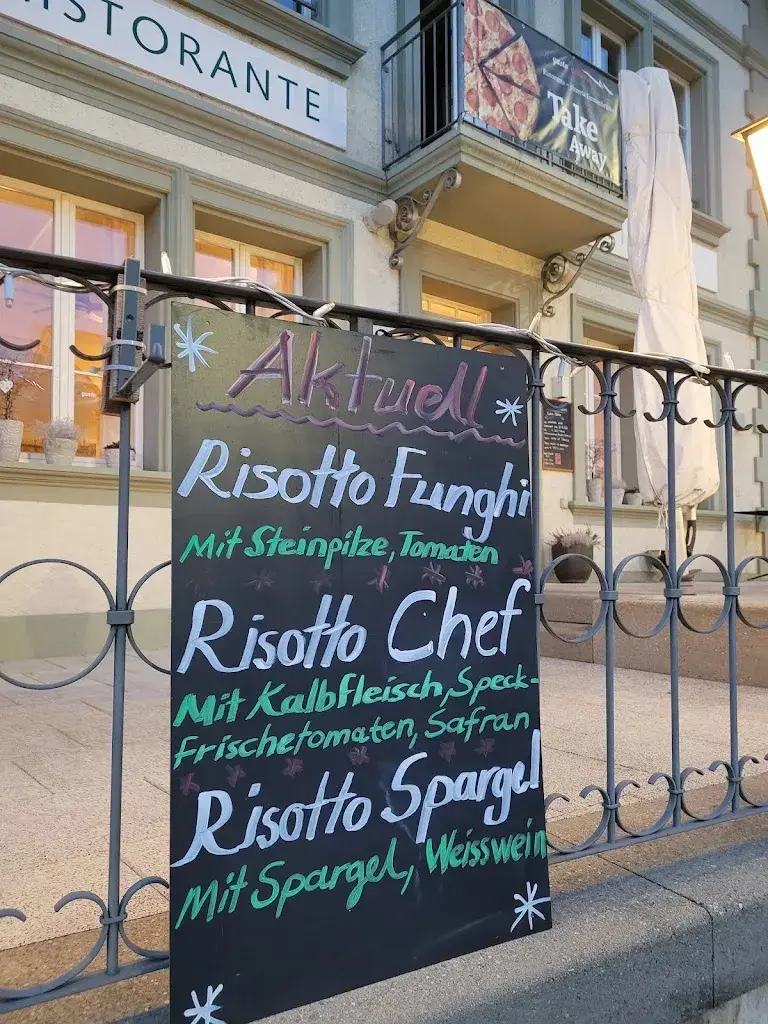 ISTORANTE
Take
Away
Aktuell
Risotto Funghi
Mit Steinpilze, Tomaten
Risotto Chef
Mit Kalbfleisch, Speck-
frischetomaten, Safran
Risotto Spargel
Mit Spargel, Weisswein